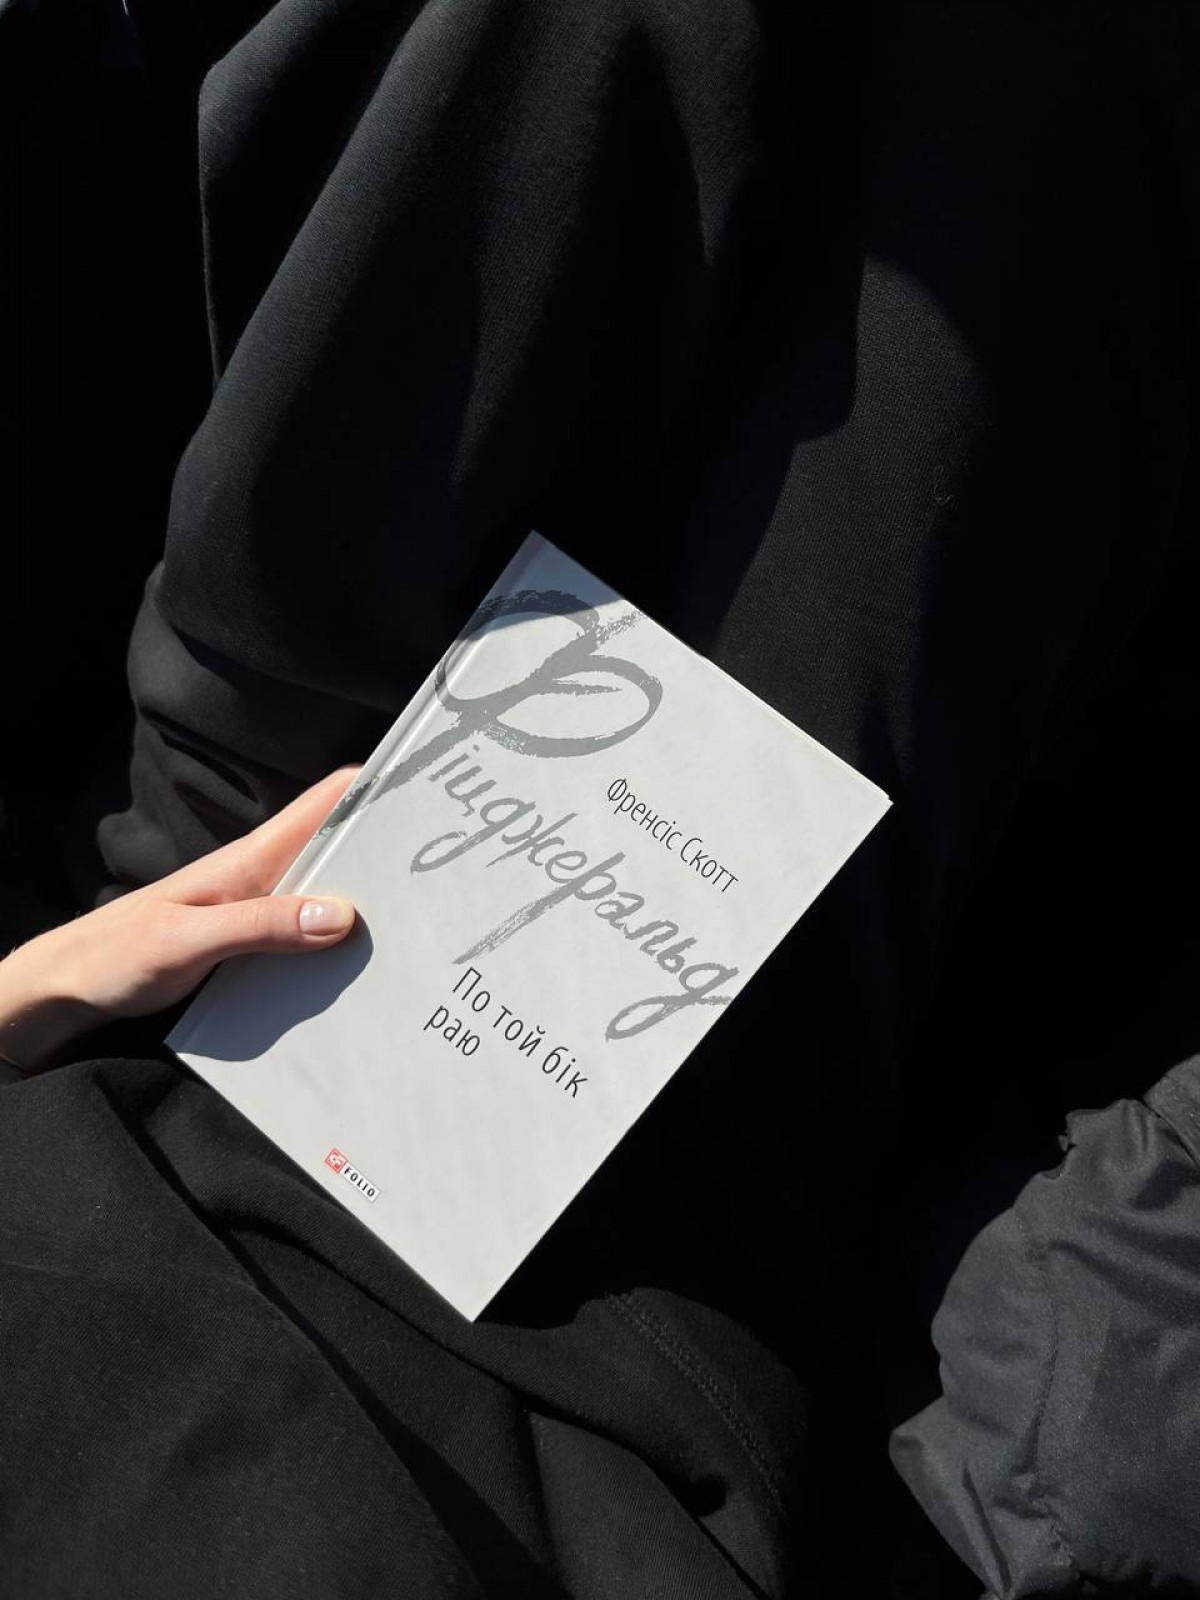 Фіцджеральд
Френсіс Скотт
По той бік
раю
FOLIO